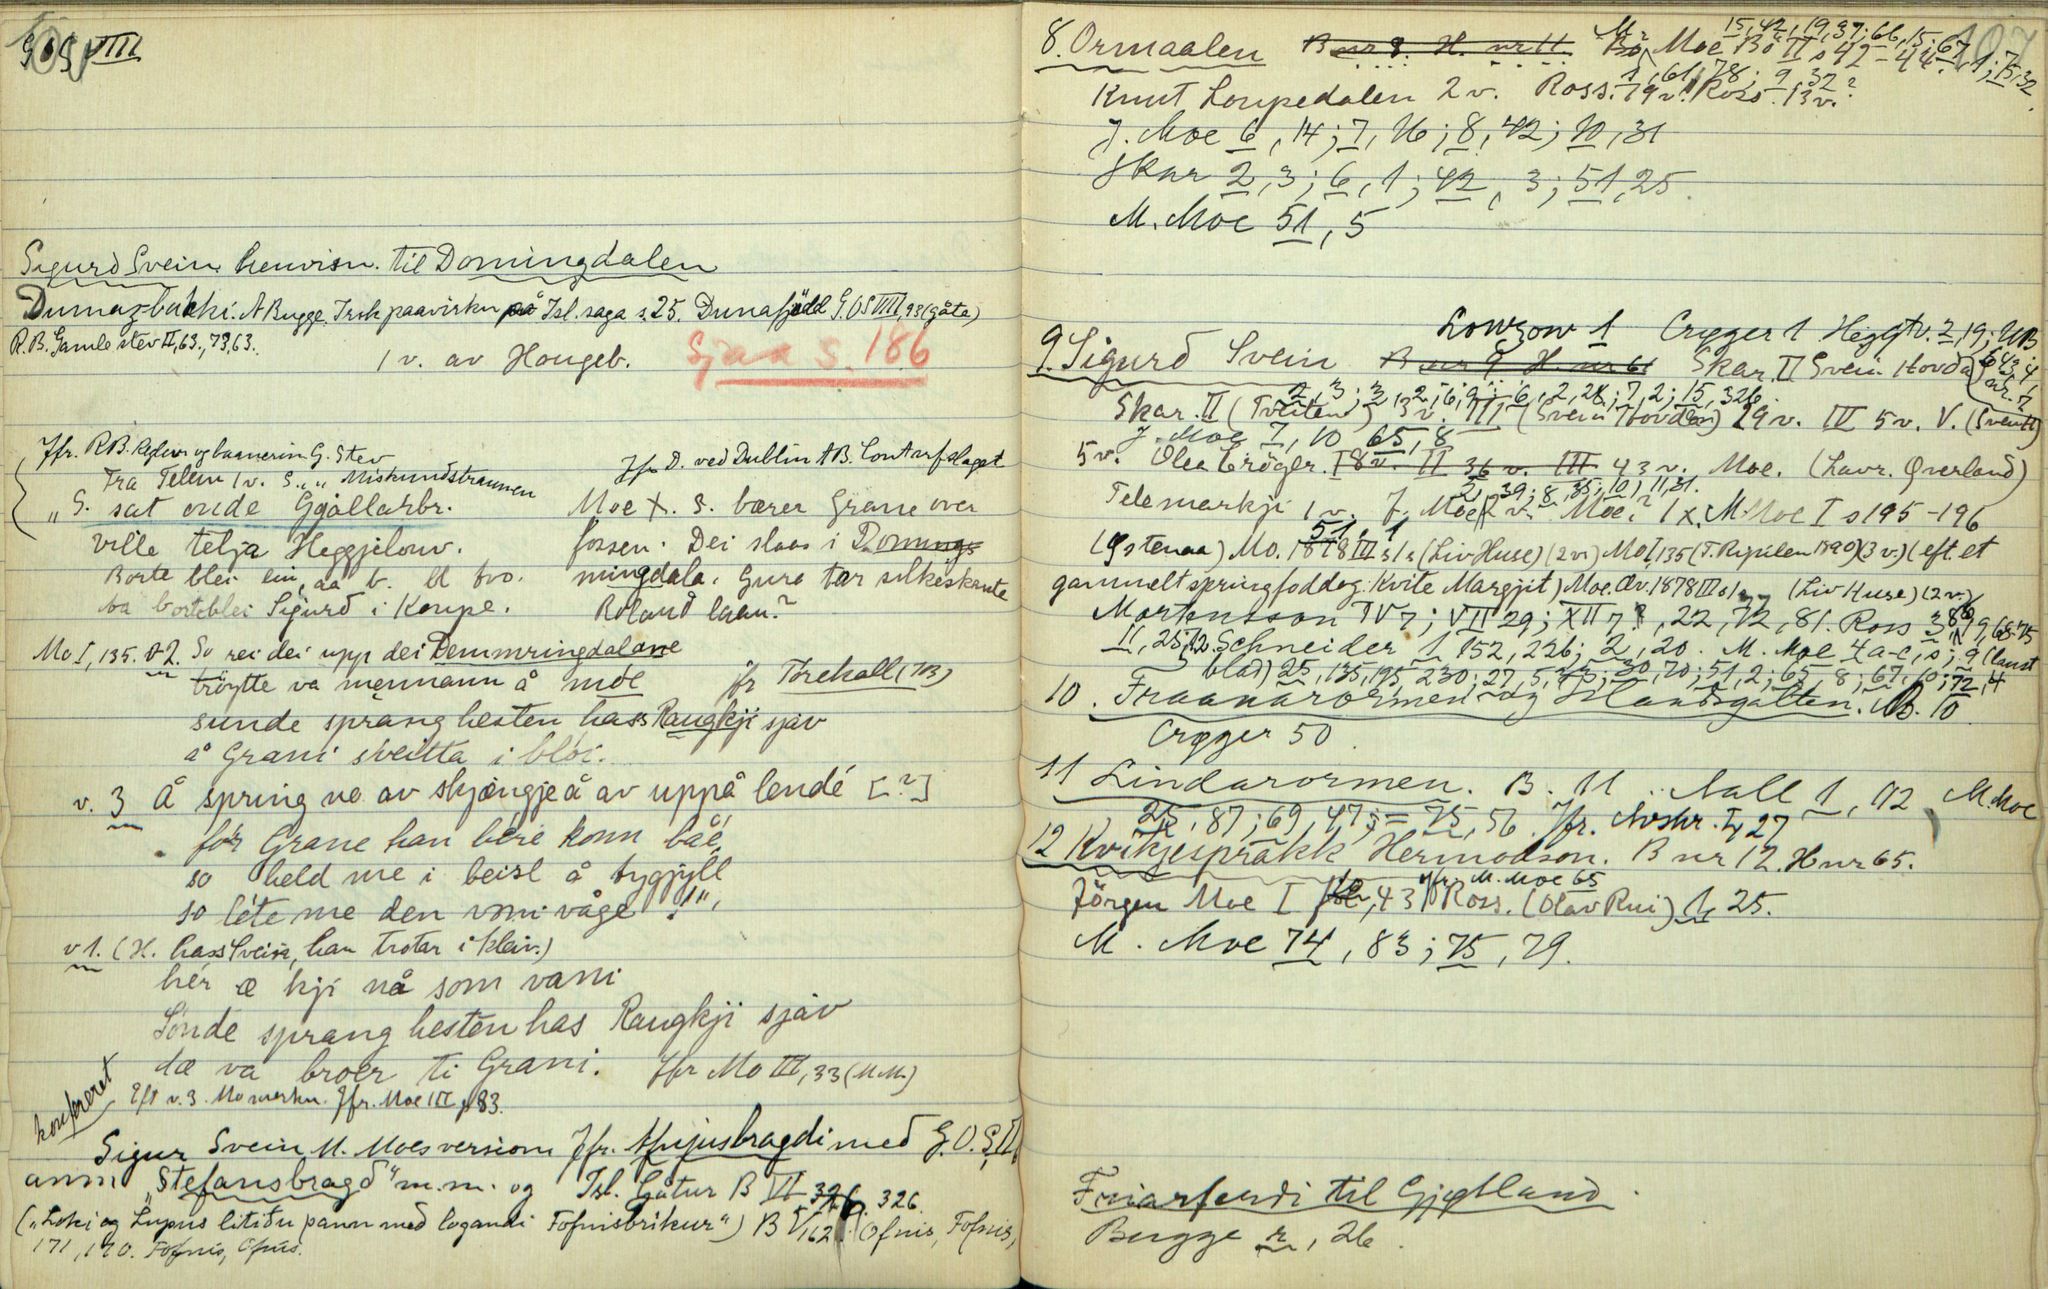 G O S VIII
Sigurd Svein henvisn. til Domingdalen
Dumaz-bakki: A Bugge. Irsk paavirkn paa Isl. saga s. 25. Dunafjødd G. OS VIII, 93 (gåta)
R.B. Gamle stev II, 63., 73, 63.
1 v. av Haugeb. Sjaa s. 186
Jfr. R.B. Regler og baanerim G. Stev
Fra Telem 1 v. S. „ „ Miskundstraumen
„S. sat onde Gjallarbr.
ville telja Heggjelauv.
Borte blei ein, aa b. bl tvo.
aa borteblei Sigurd i Kaupe.
Jfr D. ved Dublin A B.
Moe X. S. bærer Grane over
fossen. Dei slaas i Domings
mingdala. Guro tar silkeskante
Roland
Mo I, 135. v. 2. So rei dei upp dei Demmringdalane
tröytte va mennann å möe jfr Trehall (MB)
sunde sprang hesten hass Rangkji sjav
å Grani sveitta i blöi.
v. 3 Å spring no av skjengje å av uppå lende [?]
før Grane han bére konn båe,
so held me i beisl å tygjyll
so léte me den voni våge !",
v 1. (H. hass Svein, han trotar i kleiv.)
hér æ kji nå som vani
Sonde sprang hesten has Rangkji sjav
dæ va broer ti Grani. Jfr Mo III, 33 (M.M.)
konfereret
Eft v. 3. Mo merkn. Jfr. Moe III s 83.
Sigur Svein M. Moes version Jfr. med G.O.S. II,
anm „Stefansbragd" m.m. og Isl. Gåtur B VI 326. 326.
(„Loki og Lupus litidu pann med logandi Fofnisbrikur") B V, 162. Ofnis, Fofnis,
171, 170. Fofnis, Ofnis.
107
15, 42, 19, 37; 66, 15; 67, 1; 75, 32.
8. Ormaalen B nr 8. H. nr 11 M. Moe Bo II s 42-44.
1, 61, 78; 9, 32?
Knut Loupedalen 2 v. Ross. 19 v. Ross. 13 v.
J. Moe 6, 14; 7, 16; 8, 42; 10, 31
Skar 2, 3; 6, 1; 42, 3; 51, 25.
M. Moe 51, 5
Lowzow 1 Crøger 1 Heggtv. 2, 19; UB
9. Sigurd Svein B nr 9 H. nr 61 Skar II Svein Hovda 643, 4, nr. 7
2, 3; 3, 2; 6, 9; 6, 2, 28; 7, 2; 15, 326
Skar. II (Tveiten) 3 v. III (Svein Hovden) 29 v. IV 5 v. V. (Svein H)
J. Moe 7, 10 65, 8
5 v. Olea Crøger. I 8 v. II 36 v. III 43 v. Moe. (Lavr. Øverland)
2, 39; 8, 35; 10; 11, 31.
Telemarkji 1 v. J. Moe 2 v. Moe? 1 X. M. Moe I s 195-196
51, 1
(Østenaa) Mo. 1878 III s 1 s (Liv Huse) (2 v.) Mo I, 135 (T. Ripilen 1890) (3 v.) (eft. et
gammelt springfoddag: Kvite Margjit) Moe Av. 1878 III s 1 (Liv Huse) (2 v.)
Mortensson IV 7; VII 29; XII 7?, 22, 72, 81. Ross
11, 25; 12. Schneider 1, 152, 226; 2, 20. M. Moe 4 a-c, s; 9 (laust
blad) 25, 135, 195, 230; 27, 5, 45; 30, 70; 51, 2; 65, 8; 67, 10; 72, 4
10. Fraanarormen og Ilandsgalten. B. 10
Crøger 50.
11 Lindarormen. B. 11 .. Nall 1, 112 M. Moe
25, 87; 69, 47; = 75, 56. Jfr. Avskr. I, 27
12 Kvikjespråkk Hermodson. B nr 12. H nr 65.
Jfr. M. Moe 65
Jörgen Moe I 10, 43 Ross. (Olav Rui) 1, 25.
M. Moe 74, 83; 75, 79.
Friarferdi til Gjøtland.
Bugge r, 26.